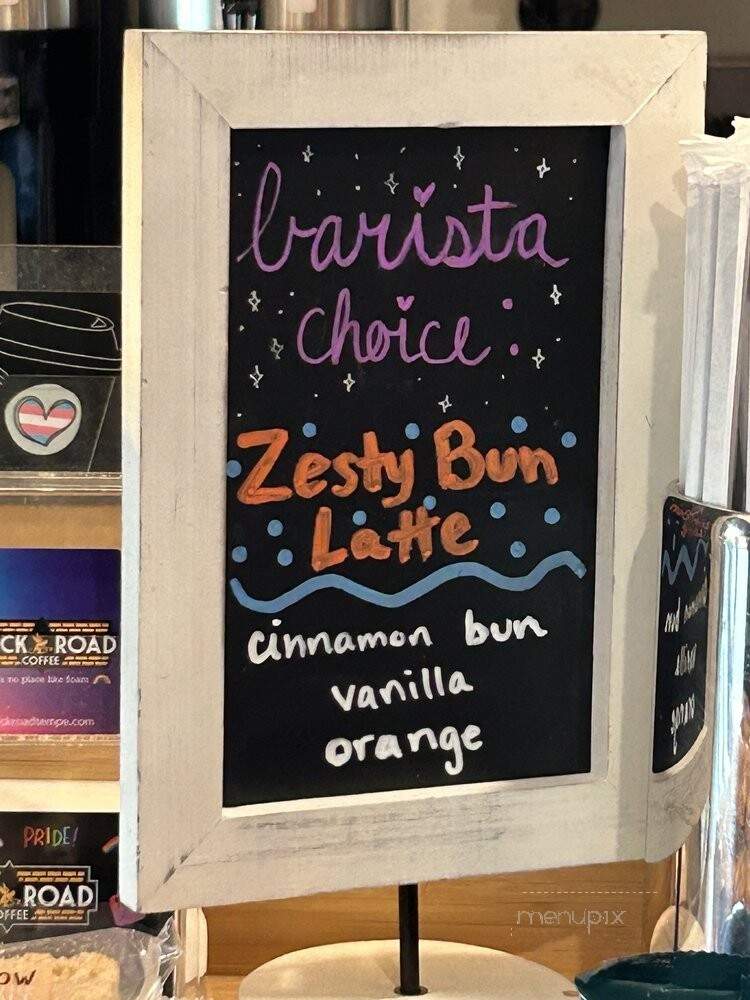 barista
choice:
Zesty Bun
Latte
cinnamon bun
vanilla
orange
CK ROAD
COFFEE
s no place like foam
ckroadtempe.com
PRIDE!
ROAD
OFFEE
ow
menupix